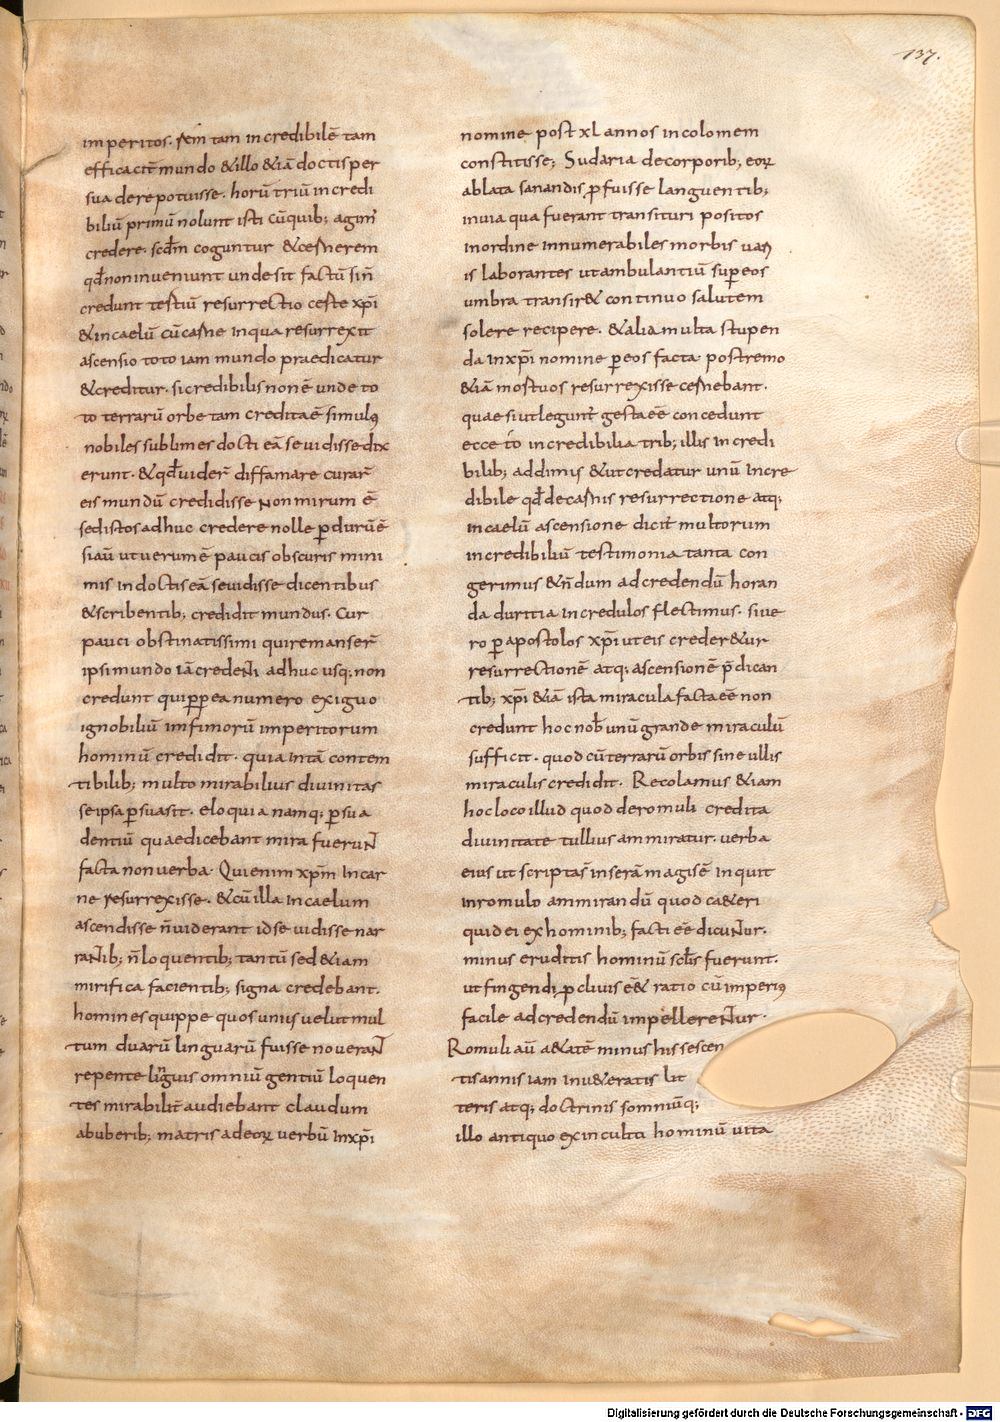 137.
imperitos. rem tam incredibilē tam
efficacit̄ mundo & illo & iā doctis per
suadere potuisse. horū triū incredi
biliū primū nolunt isti cū quib; agim̄
credere. scd̄m coguntur & cernerem
qd̄ non inveniunt unde sit factū si n̄
credunt tertiū resurrectio certe xp̄i
& in caelū cū carne in qua resurrexit
ascensio toto iam mundo praedicatur
& creditur. si credibilis non ē unde to
to terrarū orbe tam credita ē si mul&#42863;
nobiles sublimes docti eā se vidisse dix
erunt. & qd̄ vider̄ diffamare curar̄
eis mundū credidisse non mirum ē
sed istos adhuc credere nolle p̄durū ē
si aū ut verum ē paucis obscuris mini
mis indoctis eā se vidisse dicentibus
& scribentib; credidit mundus. Cur
pauci obstinatissimi qui remanser̄
ipsi mundo iā credenti adhuc usq; non
credunt qui ꝓpea numero exiguo
ignobiliū infimorū imperitorum
hominū credidit. quia in tā contem
tibilib; multo mirabilius divinitas
se ipsa ꝑsuasit. eloquia namq; ꝑsua
dentiū quae dicebant mira fuerunt
facta non verba. Qui enim xp̄m in car
ne resurrexisse. & cū illa in caelum
ascendisse n̄ viderant id se vidisse nar
rantib; n̄ loquentib; tantū sed &iam
mirifica facientib; signa credebant.
homines quippe quos unius vel ut mul
tum duarū linguarū fuisse noverant
repente linguis omniū gentiū loquen
tes mirabilit̄ audiebant claudum
ab uberib; matris ad eoꝝ verbū in xp̄i
nomine post xl annos incolomem
constitisse; Sudaria de corporib; eoꝝ
ablata sanandis ꝓfuisse languentib;
in via qua fuerant transituri positos
in ordine innumerabiles morbis vari
is laborantes ut ambulantiū sup̄ eos
umbra transir& continuo salutem
solere recipere. & alia multa stupen
da in xp̄i nomine ꝑ eos facta postremo
&iā mortuos resurrexisse cernebant.
quae si ut legunt̄ gesta eē concedunt
ecce t̄o incredibilia trib; illis incredi
bilib; addimus & ut credatur unū incre
dibile qd̄ de carnis resurrectione atq;
in caelū ascensione dicit̄ multorum
incredibiliū testimonia tanta con
gerimus & n̄dum ad credendū horan
da duritia incredulos flectimus. si ve
ro ꝑ apostolos xp̄i ut eis creder&ur
resurrectionē atq; ascensionē p̄dican
tib; xp̄i &iā ista miracula facta eē non
credunt hoc nob̄ unū grande miraculū
sufficit. quod eū terrarū orbis sine ullis
miraculis credidit. Recolamus &iam
hoc loco illud quod de romuli credita
divinitate tullius ammiratur. verba
eius ut scripta s̄ inserā magis ē inquit
in romulo ammirandū quod c&eri
qui dei ex hominib; facti eē dicuntur.
minus eruditis hominū sc̄lis fuerunt.
ut fingendi ꝓclivis ēē ratio cū imperi&#42863;
facile ad credendū impellerentur.
Romuli aū a&atē minus his sescen
tis annis iam inv&eratis lit
teris atq; doctrinis somniūq;
illo antiquo ex inculta hominū vita
Digitalisierung gefördert durch die Deutsche Forschungsgemeinschaft - DFG